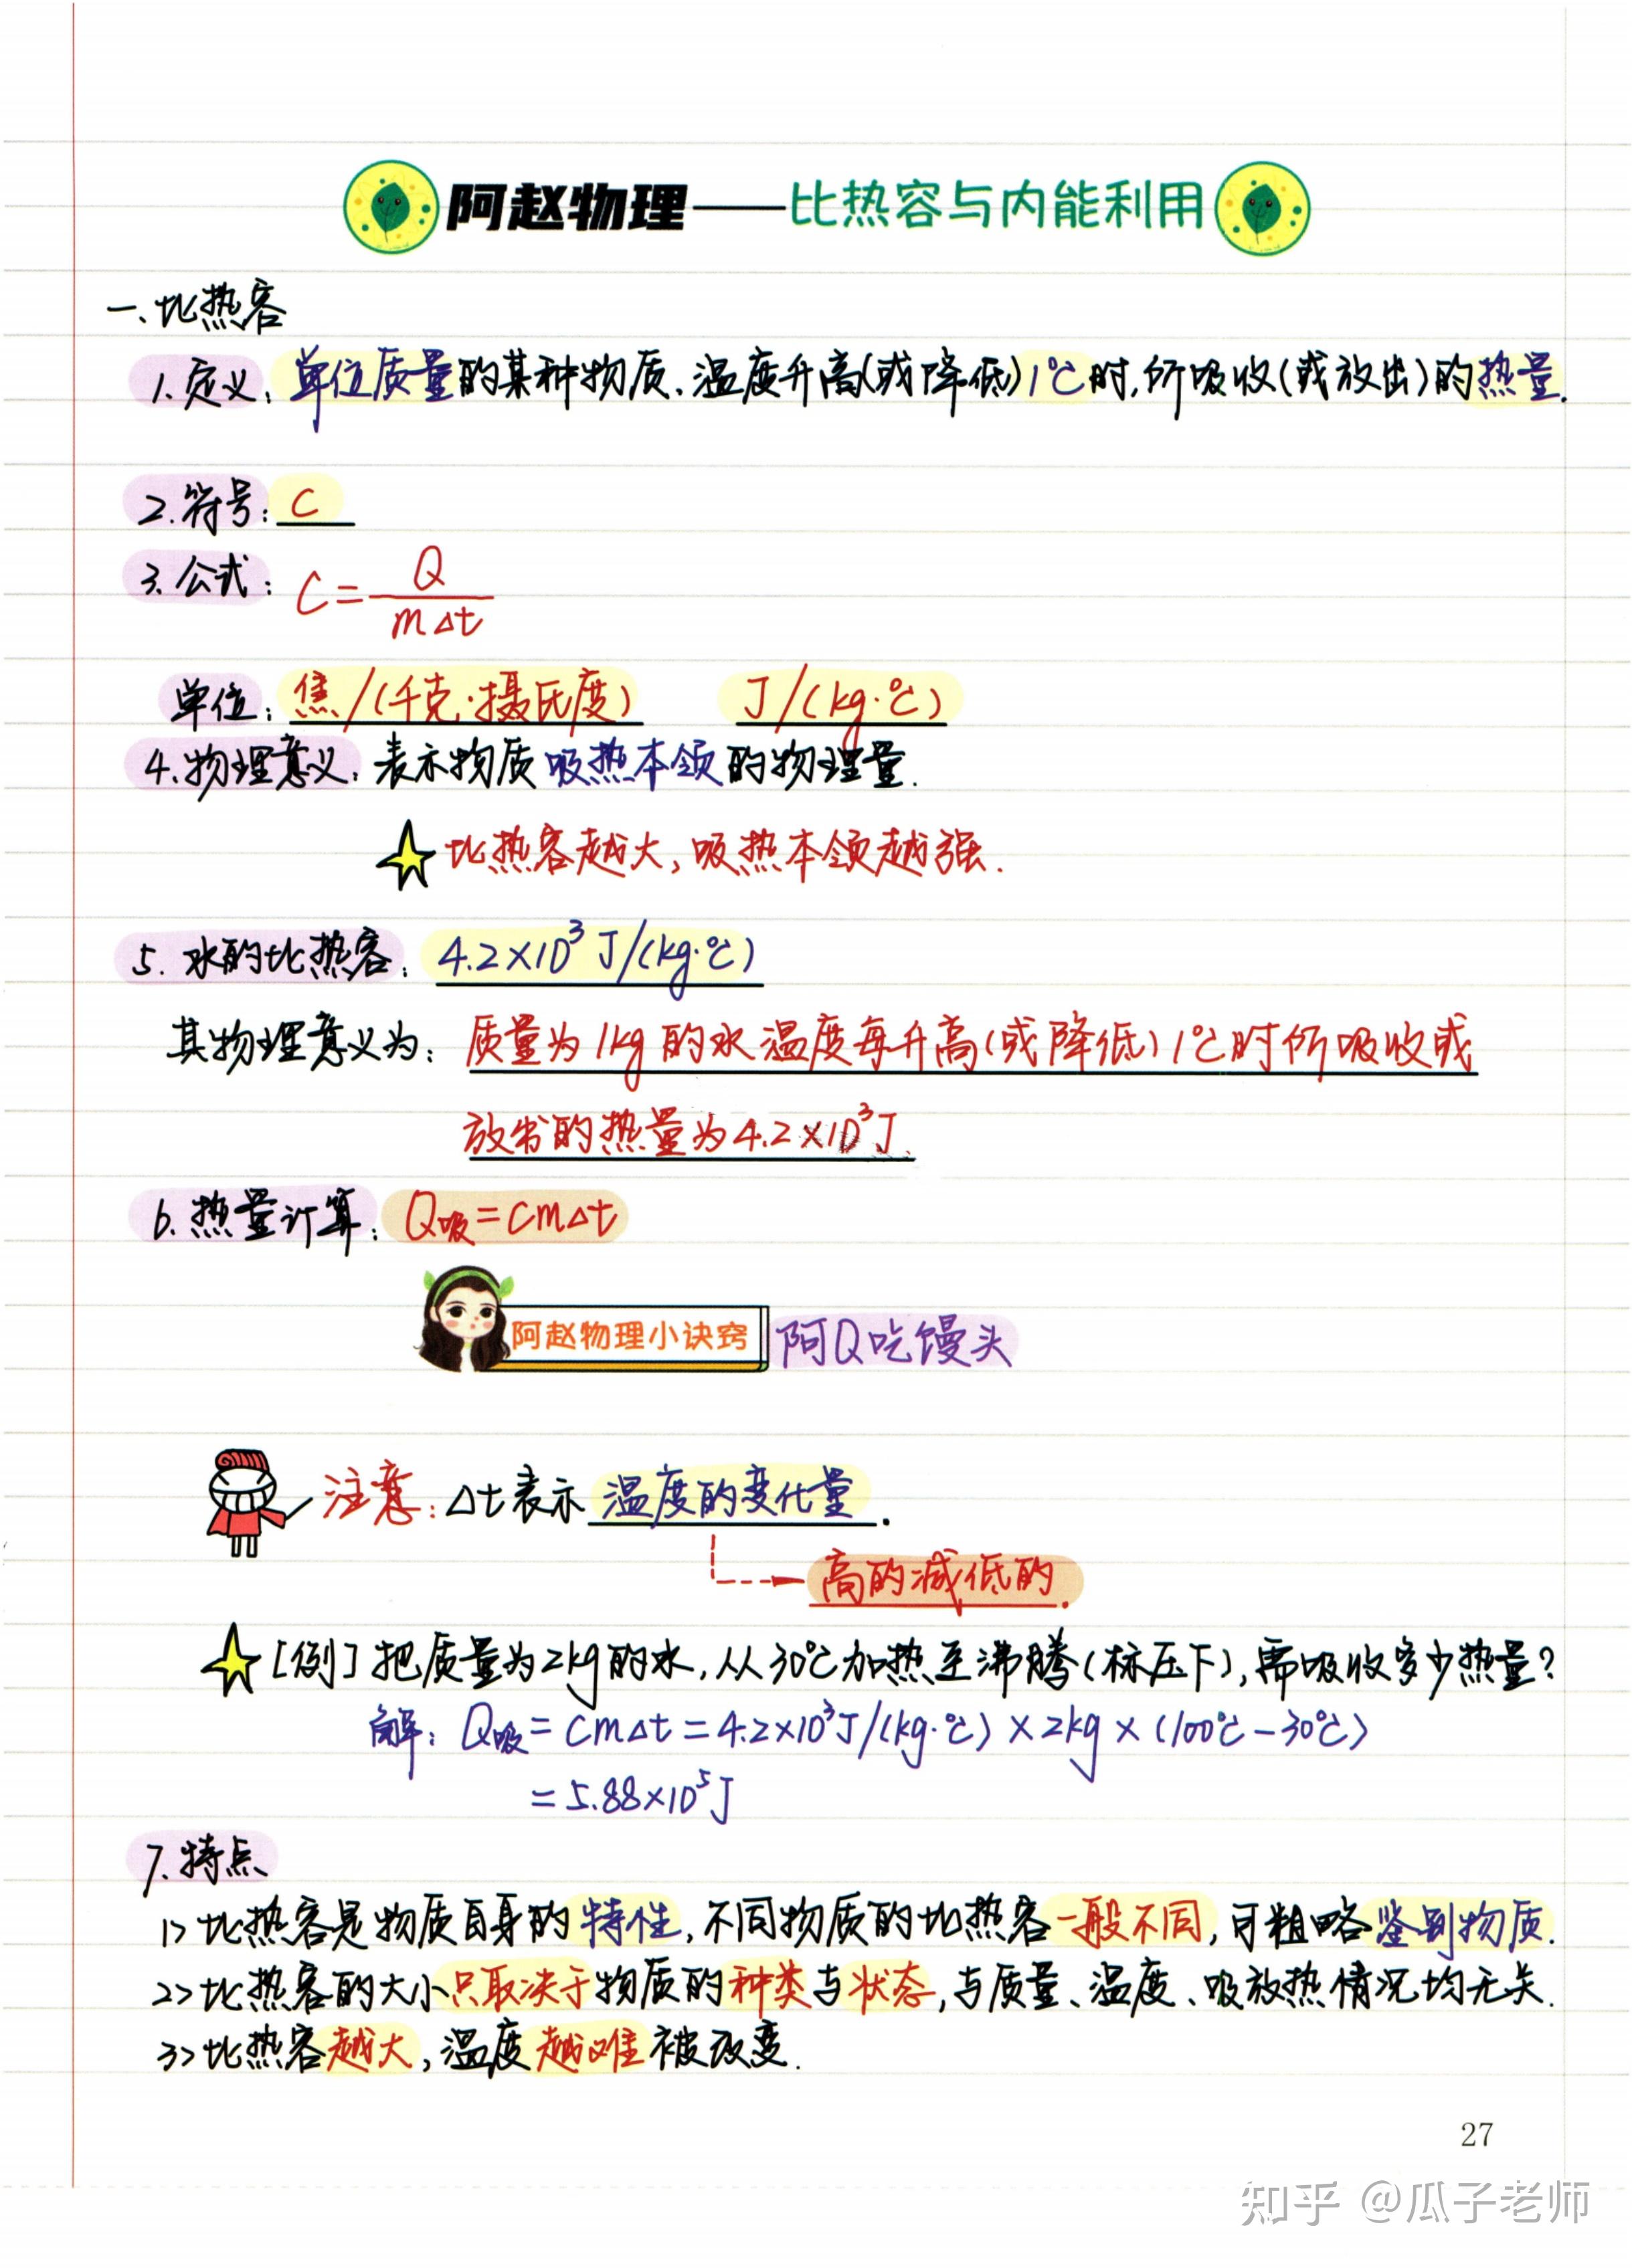 阿赵物理——比热容与内能利用
一、比热容
1. 定义：单位质量的某种物质、温度升高(或降低)1℃时,所吸收(或放出)的热量.
2. 符号：C
3. 公式：C=Q/mΔt
单位：焦/(千克·摄氏度) J/(kg·℃)
4. 物理意义：表示物质吸热本领的物理量.
比热容越大,吸热本领越强.
5. 水的比热容：4.2×10³J/(kg·℃)
其物理意义为：质量为1kg的水温度每升高(或降低)1℃时所吸收或
放出的热量为4.2×10³J.
6. 热量计算：Q吸=CmΔt
阿赵物理小诀窍 阿Q吃馒头
注意：Δt表示温度的变化量.
高的减低的.
[例]把质量为2kg的水,从30℃加热至沸腾(标压下),需吸收多少热量?
解：Q吸=CmΔt=4.2×10³J/(kg·℃)×2kg×(100℃-30℃)
=5.88×10⁵J
7. 特点
1>比热容是物质自身的特性,不同物质的比热容一般不同,可粗略鉴别物质.
2>比热容的大小只取决于物质的种类与状态,与质量、温度、吸放热情况均无关.
3>比热容越大,温度越难被改变.
27
知乎 @瓜子老师